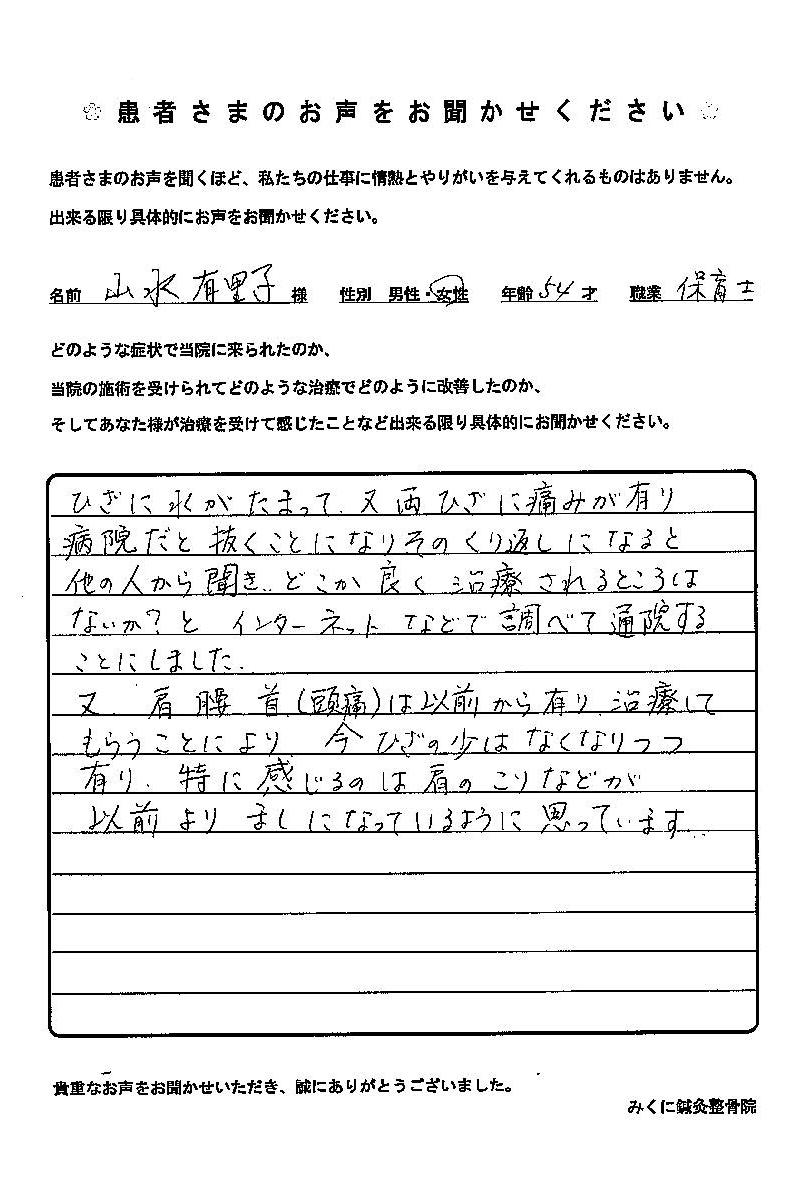 患者さまのお声をお聞かせください
患者さまのお声を聞くほど、私たちの仕事に情熱とやりがいを与えてくれるものはありません。
出来る限り具体的にお声をお聞かせください。
名前 山水 有里子 様 性別 男性・女性 年齢 54 才 職業 保育士
どのような症状で当院に来られたのか、
当院の施術を受けられてどのような治療でどのように改善したのか、
そしてあなた様が治療を受けて感じたことなど出来る限り具体的にお聞かせください。
ひざに水がたまって、又両ひざに痛みが有り
病院だと抜くことになりそのくり返しになると
他の人から聞き、どこか良く治療されるところは
ないか?と インターネットなどで調べて通院する
ことにしました。
又、肩 腰 首(頭痛)は以前から有り、治療して
もらうことにより、今ひざの水はなくなりつつ
有り、特に感じるのは肩のこりなどが
以前より ましになっているように思っています。
貴重なお声をお聞かせいただき、誠にありがとうございました。
みくに鍼灸整骨院